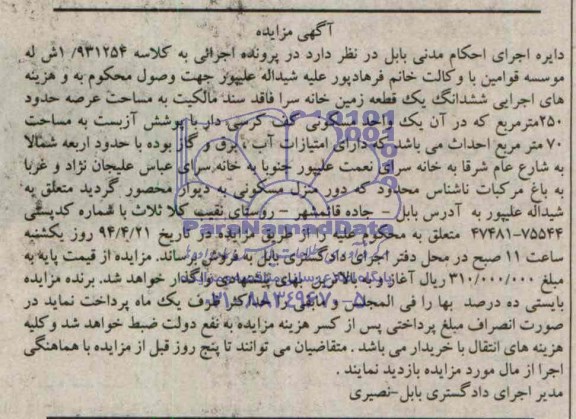 آگهی مزایده
دایره اجرای احکام مدنی بابل در نظر دارد در پرونده اجرائی به کلاسه ۹۳۱۲۵۴/ ۱ش له
موسسه قوامین با وکالت خانم فرهادپور علیه شیداله علیپور جهت وصول محکوم به و هزینه
های اجرایی ششدانگ یک قطعه زمین خانه سرا فاقد سند مالکیت به مساحت عرصه حدود
۲۵۰مترمربع که در آن یک واحد مسکونی کف کرسی دار با پوشش آزبست به مساحت
۷۰ متر مربع احداث می باشد که دارای امتیازات آب ، برق و گاز بوده با حدود اربعه شمالا
به شارع عام شرقا به خانه سرای نعمت علیپور جنوبا به خانه سرای عباس علیجان نژاد و غربا
به باغ مرکبات ناشناس محدود که دور منزل مسکونی به دیوار محصور گردید متعلق به
شیداله علیپور به آدرس بابل – جاده قائمشهر – روستای نقیب کلا ثلاث با شماره کدپستی
۷۵۵۴۴-۴۷۴۸۱ متعلق به محکوم علیه را از طریق مزایده در تاریخ ۹۴/۴/۲۱ روز یکشنبه
ساعت ۱۱ صبح در محل دفتر اجرای دادگستری بابل به فروش برساند. مزایده از قیمت پایه به
مبلغ ۳۱۰/۰۰۰/۰۰۰ ریال آغاز و به بالاترین بهای پیشنهادی واگذار خواهد شد. برنده مزایده
بایستی ده درصد بها را فی المجلس و مابقی را حداکثر ظرف یک ماه پرداخت نماید در
صورت انصراف مبلغ پرداختی پس از کسر هزینه مزایده به نفع دولت ضبط خواهد شد و کلیه
هزینه های انتقال با خریدار می باشد . متقاضیان می توانند تا پنج روز قبل از مزایده با هماهنگی
اجرا از مال مورد مزایده بازدید نمایند .
مدیر اجرای دادگستری بابل-نصیری
ParsNamadData
۰۲۱-۸۸۳۴۹۶۷۰-۵